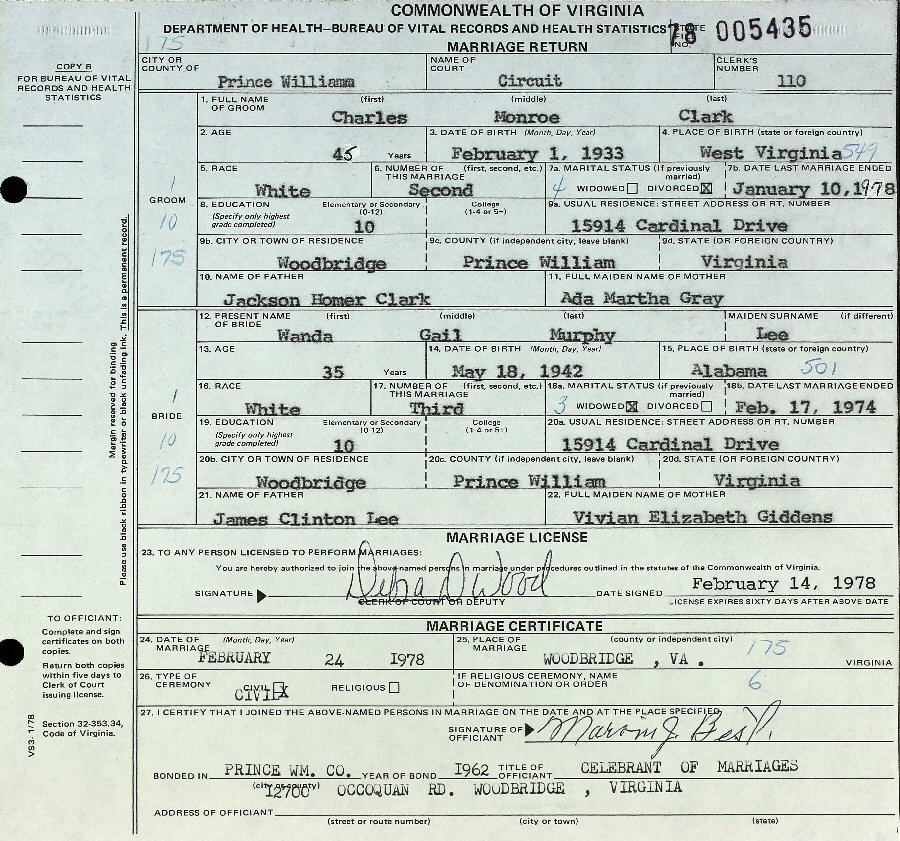 COMMONWEALTH OF VIRGINIA
DEPARTMENT OF HEALTH—BUREAU OF VITAL RECORDS AND HEALTH STATISTICS STATE FILE NO. 78 005435
MARRIAGE RETURN
175
COPY B
FOR BUREAU OF VITAL RECORDS AND HEALTH STATISTICS
CITY OR COUNTY OF Prince William NAME OF COURT Circuit CLERK'S NUMBER 110
GROOM
1
10
175
1. FULL NAME OF GROOM (first) Charles (middle) Monroe (last) Clark
2. AGE 45 Years 3. DATE OF BIRTH (Month, Day, Year) February 1, 1933 4. PLACE OF BIRTH (state or foreign country) West Virginia 549
5. RACE White 6. NUMBER OF THIS MARRIAGE (first, second, etc.) Second 7a. MARITAL STATUS (If previously married) 4 WIDOWED DIVORCED X 7b. DATE LAST MARRIAGE ENDED January 10, 1978
8. EDUCATION (Specify only highest grade completed) Elementary or Secondary (0-12) 10 College (1-4 or 5+) 9a. USUAL RESIDENCE: STREET ADDRESS OR RT. NUMBER 15914 Cardinal Drive
9b. CITY OR TOWN OF RESIDENCE Woodbridge 9c. COUNTY (if independent city, leave blank) Prince William 9d. STATE (OR FOREIGN COUNTRY) Virginia
10. NAME OF FATHER Jackson Homer Clark 11. FULL MAIDEN NAME OF MOTHER Ada Martha Gray
BRIDE
1
10
175
12. PRESENT NAME OF BRIDE (first) Wanda (middle) Gail (last) Murphy MAIDEN SURNAME (if different) Lee
13. AGE 35 Years 14. DATE OF BIRTH (Month, Day, Year) May 18, 1942 15. PLACE OF BIRTH (state or foreign country) Alabama 501
16. RACE White 17. NUMBER OF THIS MARRIAGE (first, second, etc.) Third 18a. MARITAL STATUS (if previously married) 3 WIDOWED X DIVORCED 18b. DATE LAST MARRIAGE ENDED Feb. 17, 1974
19. EDUCATION (Specify only highest grade completed) Elementary or Secondary (0-12) 10 College (1-4 or 5+) 20a. USUAL RESIDENCE: STREET ADDRESS OR RT. NUMBER 15914 Cardinal Drive
20b. CITY OR TOWN OF RESIDENCE Woodbridge 20c. COUNTY (if independent city, leave blank) Prince William 20d. STATE (OR FOREIGN COUNTRY) Virginia
21. NAME OF FATHER James Clinton Lee 22. FULL MAIDEN NAME OF MOTHER Vivian Elizabeth Giddens
Margin reserved for binding
Please use black ribbon in typewriter or black unfading ink. This is a permanent record.
MARRIAGE LICENSE
23. TO ANY PERSON LICENSED TO PERFORM MARRIAGES:
You are hereby authorized to join the above-named persons in marriage under procedures outlined in the statutes of the Commonwealth of Virginia.
SIGNATURE Debra D Wood DATE SIGNED February 14, 1978
CLERK OF COURT OR DEPUTY LICENSE EXPIRES SIXTY DAYS AFTER ABOVE DATE
TO OFFICIANT:
Complete and sign certificates on both copies.
Return both copies within five days to Clerk of Court issuing license.
Section 32-353.34, Code of Virginia.
VS3- 1/78
MARRIAGE CERTIFICATE
24. DATE OF MARRIAGE (Month, Day, Year) FEBRUARY 24 1978 25. PLACE OF MARRIAGE (county or independent city) WOODBRIDGE , VA . 175 VIRGINIA
26. TYPE OF CEREMONY CIVIL X RELIGIOUS IF RELIGIOUS CEREMONY, NAME OF DENOMINATION OR ORDER 6
27. I CERTIFY THAT I JOINED THE ABOVE-NAMED PERSONS IN MARRIAGE ON THE DATE AND AT THE PLACE SPECIFIED
SIGNATURE OF OFFICIANT Marvin J.
BONDED IN PRINCE WM. CO. YEAR OF BOND 1962 TITLE OF OFFICIANT CELEBRANT OF MARRIAGES
(city or county)
12700 OCCOQUAN RD. WOODBRIDGE , VIRGINIA
ADDRESS OF OFFICIANT
(street or route number) (city or town) (state)